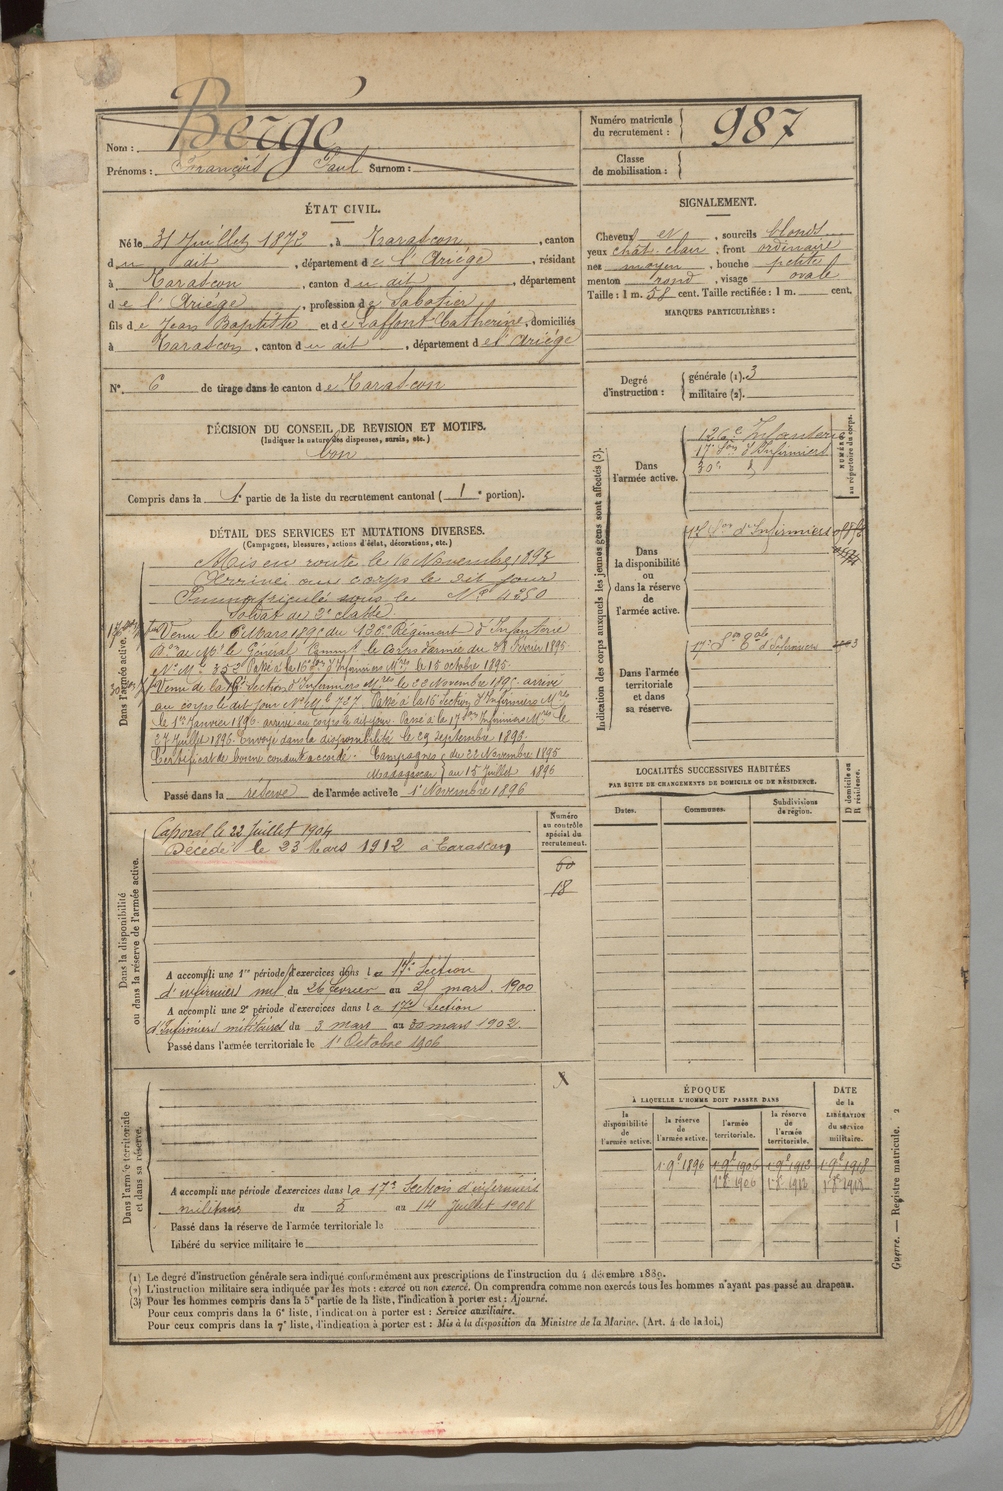 Nom : Bergé
Prénoms : François Paul Surnom :
Numéro matricule du recrutement : 987
Classe de mobilisation :
ÉTAT CIVIL.
Né le 31 Juillet 1872, à Tarascon, canton
du dit, département de l'Ariége, résidant
à Tarascon, canton du dit, département
de l'Ariége, profession de Sabotier
fils de Jean Baptiste et de Laffont Catherine, domiciliés
à Tarascon, canton du dit, département de l'Ariége
N° 6 de tirage dans le canton de Tarascon
DÉCISION DU CONSEIL DE REVISION ET MOTIFS.
(Indiquer la nature des dispenses, sursis, etc.)
bon
Compris dans la 1e partie de la liste du recrutement cantonal ( 1e portion).
SIGNALEMENT.
Cheveux et, sourcils blonds
yeux chât. clair, front ordinaire
nez moyen, bouche petite
menton rond, visage ovale
Taille : 1 m. 58 cent. Taille rectifiée : 1 m. cent.
MARQUES PARTICULIÈRES :
Degré d'instruction : générale (1). 3
militaire (2).
DÉTAIL DES SERVICES ET MUTATIONS DIVERSES.
(Campagnes, blessures, actions d'éclat, décorations, etc.)
Dans l'armée active.
Mis en route le 16 Novembre 1893
Arrivé au corps le dit jour
Immatriculé sous le Nº 4250
Soldat de 2e classe.
Venu le 6 Mars 1895 du 126e Régiment d'Infanterie
de Mr le Général Commt le Corps d'armée du Février 1895
Passé à la 16e Son d'Infirmiers Mres le 15 octobre 1895
Venu de la Section d'Infirmiers Mres le 22 Novembre 1895 arrivé
au corps le dit jour Nº Mle 737. Passé à la 16 Section d'Infirmiers Mres
le 1er Janvier 1896 arrivé au corps le dit jour. Passé à la 17e Son Infirmiers Mres le
27 Juillet 1896. Envoyé dans la disponibilité le 29 Septembre 1896.
Certificat de bonne conduite accordé. Campagnes du 22 Novembre 1895
Madagascar au 15 Juillet 1896
Passé dans la réserve de l'armée active le 1er Novembre 1896
Indication des corps auxquels les jeunes gens sont affectés (3).
NUMÉROS au répertoire du corps.
Dans l'armée active.
126e Infanterie
17e Son d'Infirmiers
30e
Dans la disponibilité ou dans la réserve de l'armée active.
17e Son d'Infirmiers
Dans l'armée territoriale et dans sa réserve.
17e Son Tale d'Infirmiers
LOCALITÉS SUCCESSIVES HABITÉES
PAR SUITE DE CHANGEMENTS DE DOMICILE OU DE RÉSIDENCE.
Dates. Communes. Subdivisions de région.
D domicile ou R résidence.
Dans la disponibilité ou dans la réserve de l'armée active.
Numéro au contrôle spécial du recrutement.
Caporal le 22 Juillet 1904
Décédé le 23 Mars 1912 à Tarascon
60
18
A accompli une 1re période d'exercices dans la 17e Section
d'infirmiers mil du 26 février au 21 mars 1900
A accompli une 2e période d'exercices dans la 17e Section
d'Infirmiers militaires du 3 mars au 30 mars 1902.
Passé dans l'armée territoriale le 1er Octobre 1906
Dans l'armée territoriale et dans sa réserve.
X
A accompli une période d'exercices dans la 17e Section d'infirmiers
militaires du 5 au 14 Juillet 1908
Passé dans la réserve de l'armée territoriale le
Libéré du service militaire le
ÉPOQUE
À LAQUELLE L'HOMME DOIT PASSER DANS
DATE de la LIBÉRATION du service militaire.
la disponibilité de l'armée active.
la réserve de l'armée active.
l'armée territoriale.
la réserve de l'armée territoriale.
1 9e 1896 1 9e 1906 1 9e 1912 1 9e 1918
1 8e 1906 1 8e 1912 1 8e 1918
(1) Le degré d'instruction générale sera indiqué conformément aux prescriptions de l'instruction du 4 décembre 1889.
(2) L'instruction militaire sera indiquée par les mots : exercé ou non exercé. On comprendra comme non exercés tous les hommes n'ayant pas passé au drapeau.
(3) Pour les hommes compris dans la 5e partie de la liste, l'indication à porter est : Ajourné.
Pour ceux compris dans la 6e liste, l'indication à porter est : Service auxiliaire.
Pour ceux compris dans la 7e liste, l'indication à porter est : Mis à la disposition du Ministre de la Marine. (Art. 4 de la loi.)
Guerre. — Registre matricule. 2